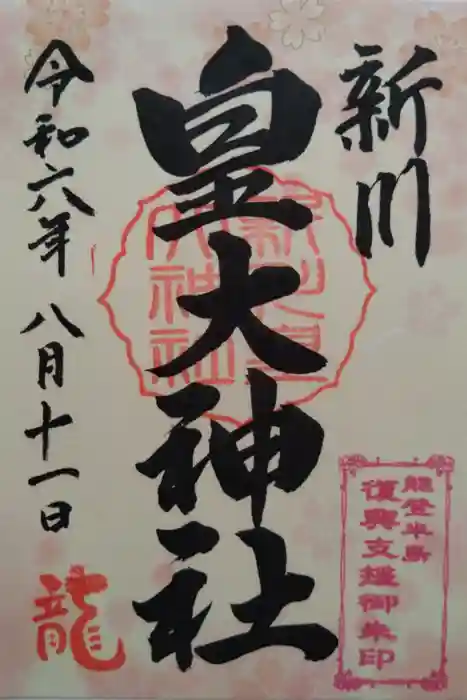 新川
皇大神社
令和六年 八月十一日
龍
新川皇
大神社
能登半島
復興支援御朱印